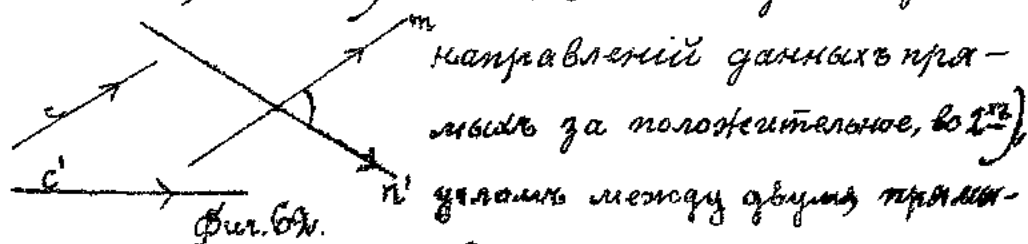 направленiй данныхъ пря-
мыхъ за положительное, во 2хъ)
угломъ между двумя прямы-
m
c
c'
n'
Фиг.